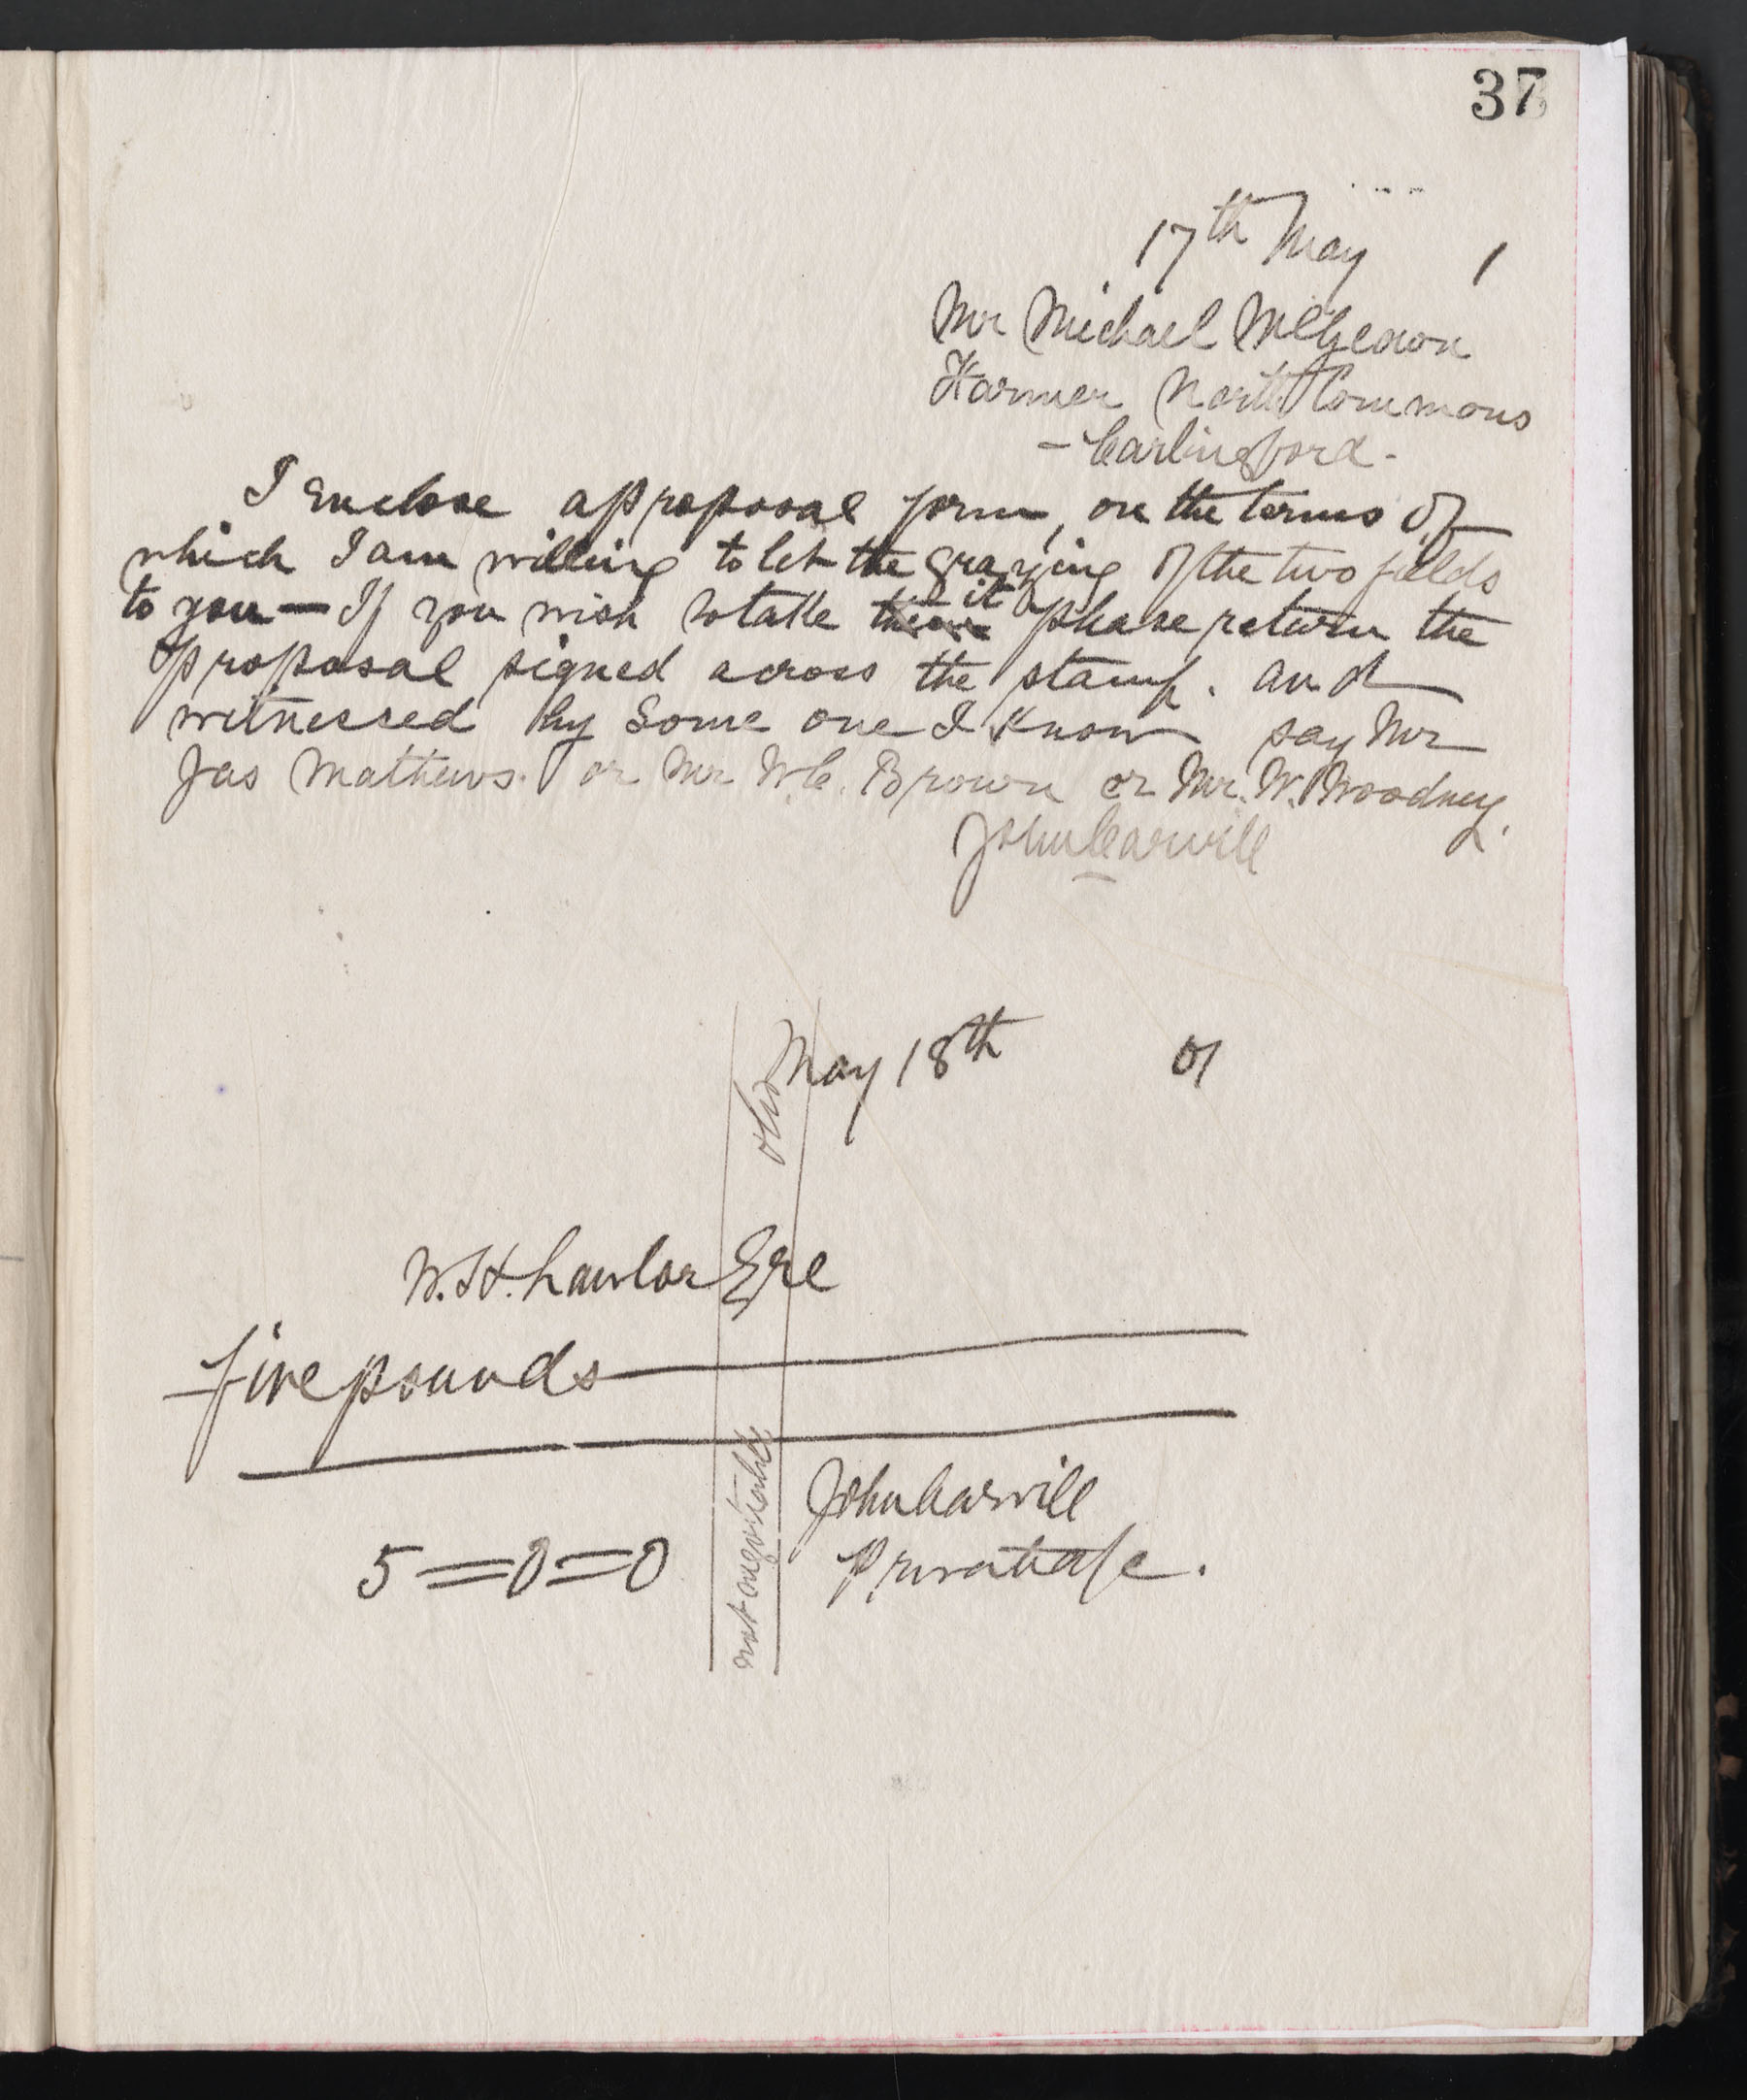 37
17th May 1
Mr Michael McGeown
Farmer North Commons
- Carlingford -
I enclose a proposal form, on the terms of
which I am willing to let the grazing of the two fields
to you — If you wish to take it please return the
proposal signed across the stamp. and
witnessed by Some one I know say Mr
Jas Mathews. or Mr W.C. Brown or Mr. W. Woodney.
John Carvill
May 18th 01
W. H. Lawlor Esre
five pounds
John Carvill
Private a/c.
5=0=0
not negotiable